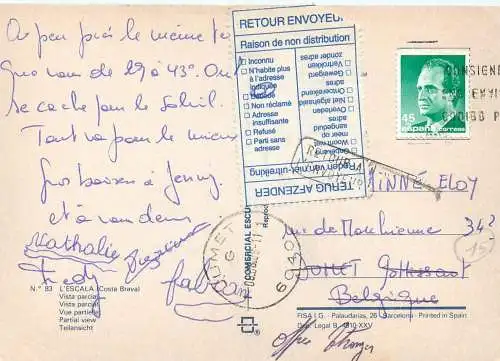 A peu près le même te
Que vous de 29 à 43°. On
se cache pour le soleil.
Tout va pour le mieux
Gros baisers à Jenny
et à vous deux
Nathalie
Fredy
fabian
RETOUR ENVOYEUR
Raison de non distribution
Inconnu
N'habite plus à l'adresse indiquée
Non réclamé
Adresse insuffisante
Refusé
Parti sans adresse
zonder adres
Vertrokken
Geweigerd
Onvoldoende adres
Niet afgehaald
Woont niet meer op aangeduid adres
Onbekend
Reden van niet-uitreiking
TERUG AFZENDER
RETOUR
45
españa correos
CONSIGNE
EN ENVIO
CODIGO P
MINNE ELOY
rue de Marchienne 343
JUMET Gohissart
Belgique
JUMET
G
6040
COMERCIAL ESCU
N.° 83 L'ESCALA (Costa Brava)
Vista parcial
Vista parcial
Vue partielle
Partial view
Teilansicht
FISA I.G. Palaudarias, 26 - Barcelona - Printed in Spain
Dep. Legal B.
-XXV